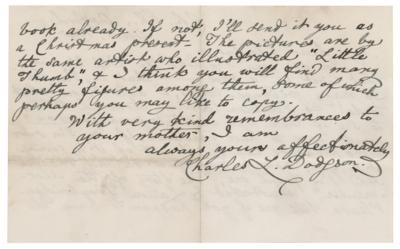 book already. If not, I'll send it you as
a Christmas present. The pictures are by
the same artist who illustrated "Little
Thumb," & I think you will find many
pretty figures among them, some of which
perhaps you may like to copy.
With very kind remembrances to
your mother, I am
always yours affectionately
Charles L. Dodgson.